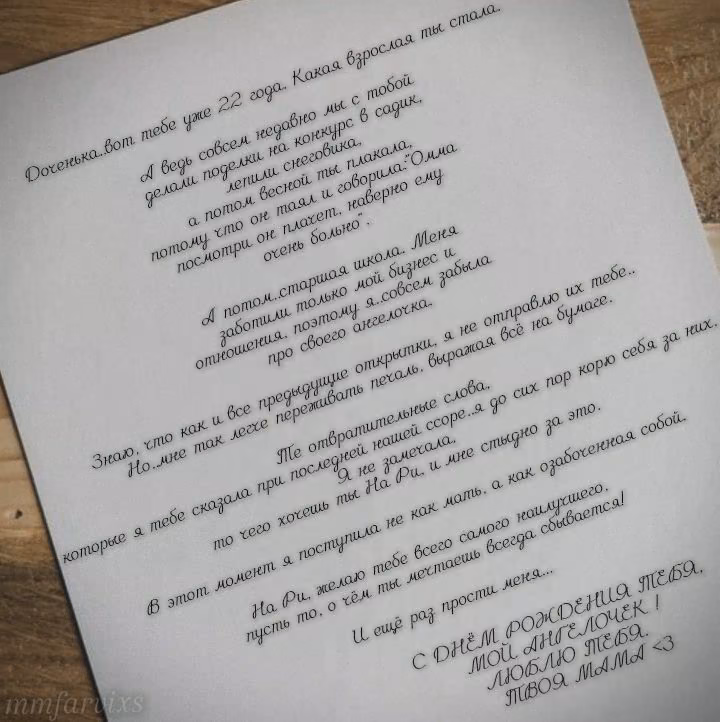 Доченька..вот тебе уже 22 года. Какая взрослая ты стала.
А ведь совсем недавно мы с тобой
делали поделки на конкурс в садик,
лепили снеговика,
а потом весной ты плакала,
потому что он таял и говорила:"Омма
посмотри он плачет, наверно ему
очень больно".
А потом..старшая школа. Меня
заботили только мой бизнес и
отношения, поэтому я..совсем забыла
про своего ангелочка.
Знаю, что как и все предыдущие открытки, я не отправлю их тебе..
Но..мне так легче переживать печаль, выражая всё на бумаге.
Те отвратительные слова,
которые я тебе сказала при последней нашей ссоре..я до сих пор корю себя за них.
Я не замечала,
то чего хочешь ты На Ри, и мне стыдно за это.
В этот момент я поступила не как мать, а как озабоченная собой.
На Ри, желаю тебе всего самого наилучшего,
пусть то, о чём ты мечтаешь всегда сбывается!
И ещё раз прости меня...
С ДНЁМ РОЖДЕНИЯ ТЕБЯ,
МОЙ АНГЕЛОЧЕК !
ЛЮБЛЮ ТЕБЯ.
ТВОЯ МАМА <3
mmfarvixs